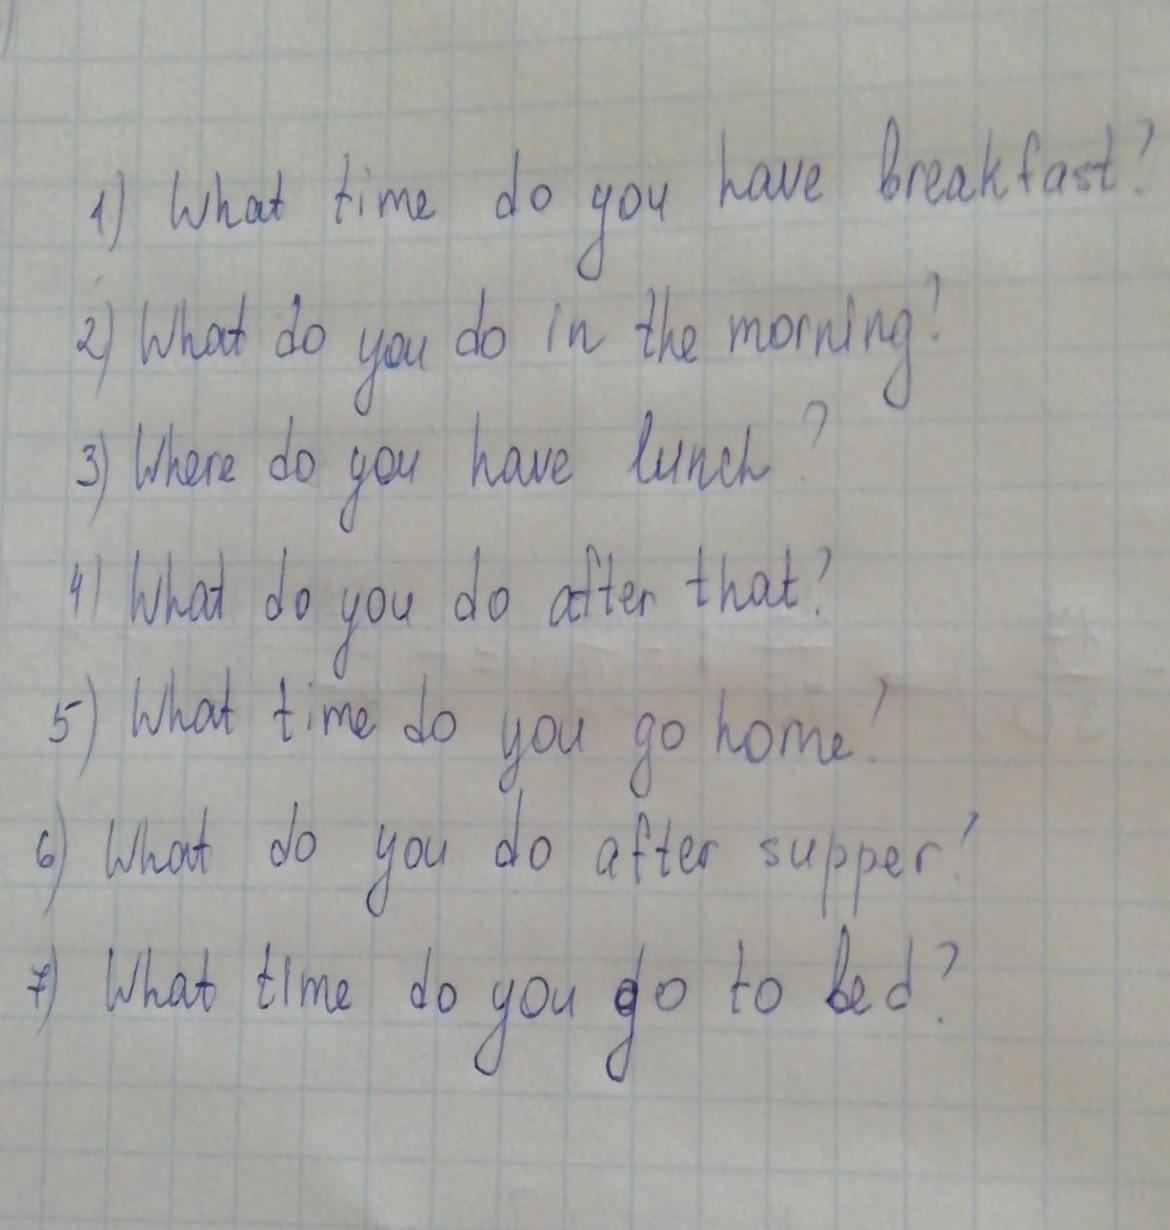 1) What time do you have breakfast?
2) What do you do in the morning?
3) Where do you have lunch?
4) What do you do after that?
5) What time do you go home?
6) What do you do after supper?
7) What time do you go to bed?